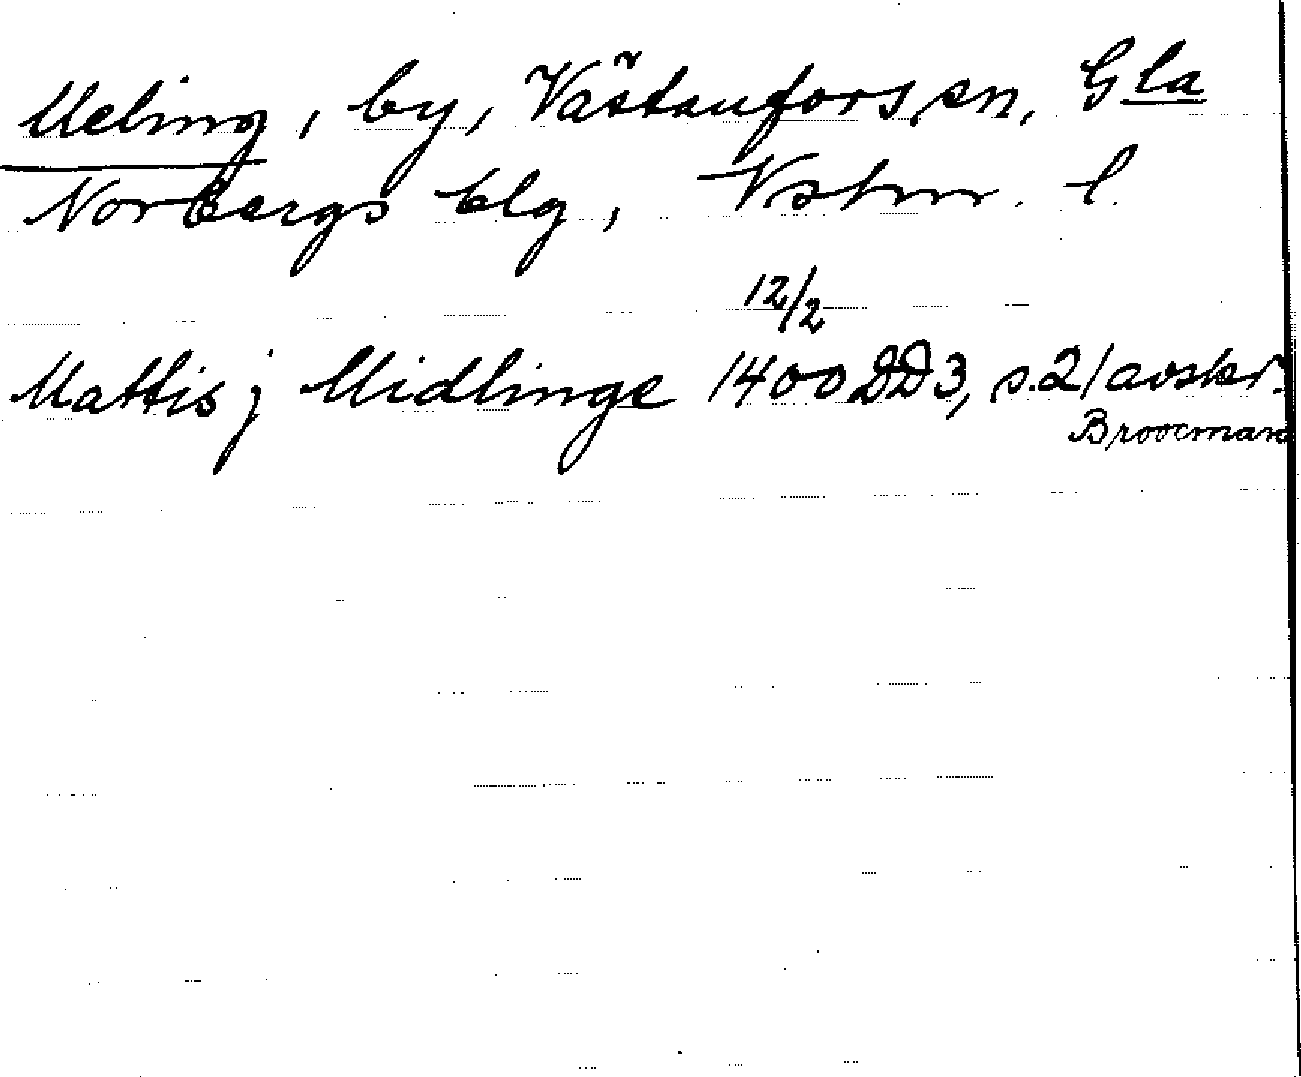 Meling, by, Västanfors sn, Gla
Norbergs blg, Vstm. l.
12/2
Mattis j Midlinge 1400 DD3, s.2/avskr.
Broocman